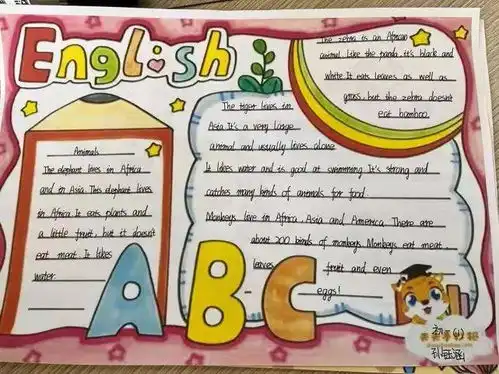 English
Animals
The elephant lives in Africa
and in Asia. This elephant lives
in Africa. It eats plants and
a little fruit, but it doesn't
eat meat. It likes
water
The zebra is an African
animal. like the panda, it's black and
white It eats leaves as well as
grass, but the zebra doesn't
eat bamboo.
The tiger lives in
Asia. It's a very large
animal and usually lives alone
It likes water and is good at swimming. It's strong and
catches many kinds of animals for food
Monkeys live in Africa, Asia and America. There are
about 200 kinds of monkeys. Monkeys eat meat,
leaves, fruit and even
eggs!
ABC